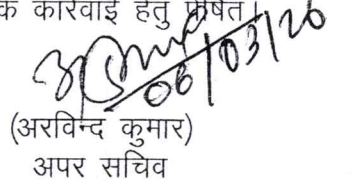 क कार्रवाई हेतु प्रेषित।
06/03/26
(अरविन्द कुमार)
अपर सचिव